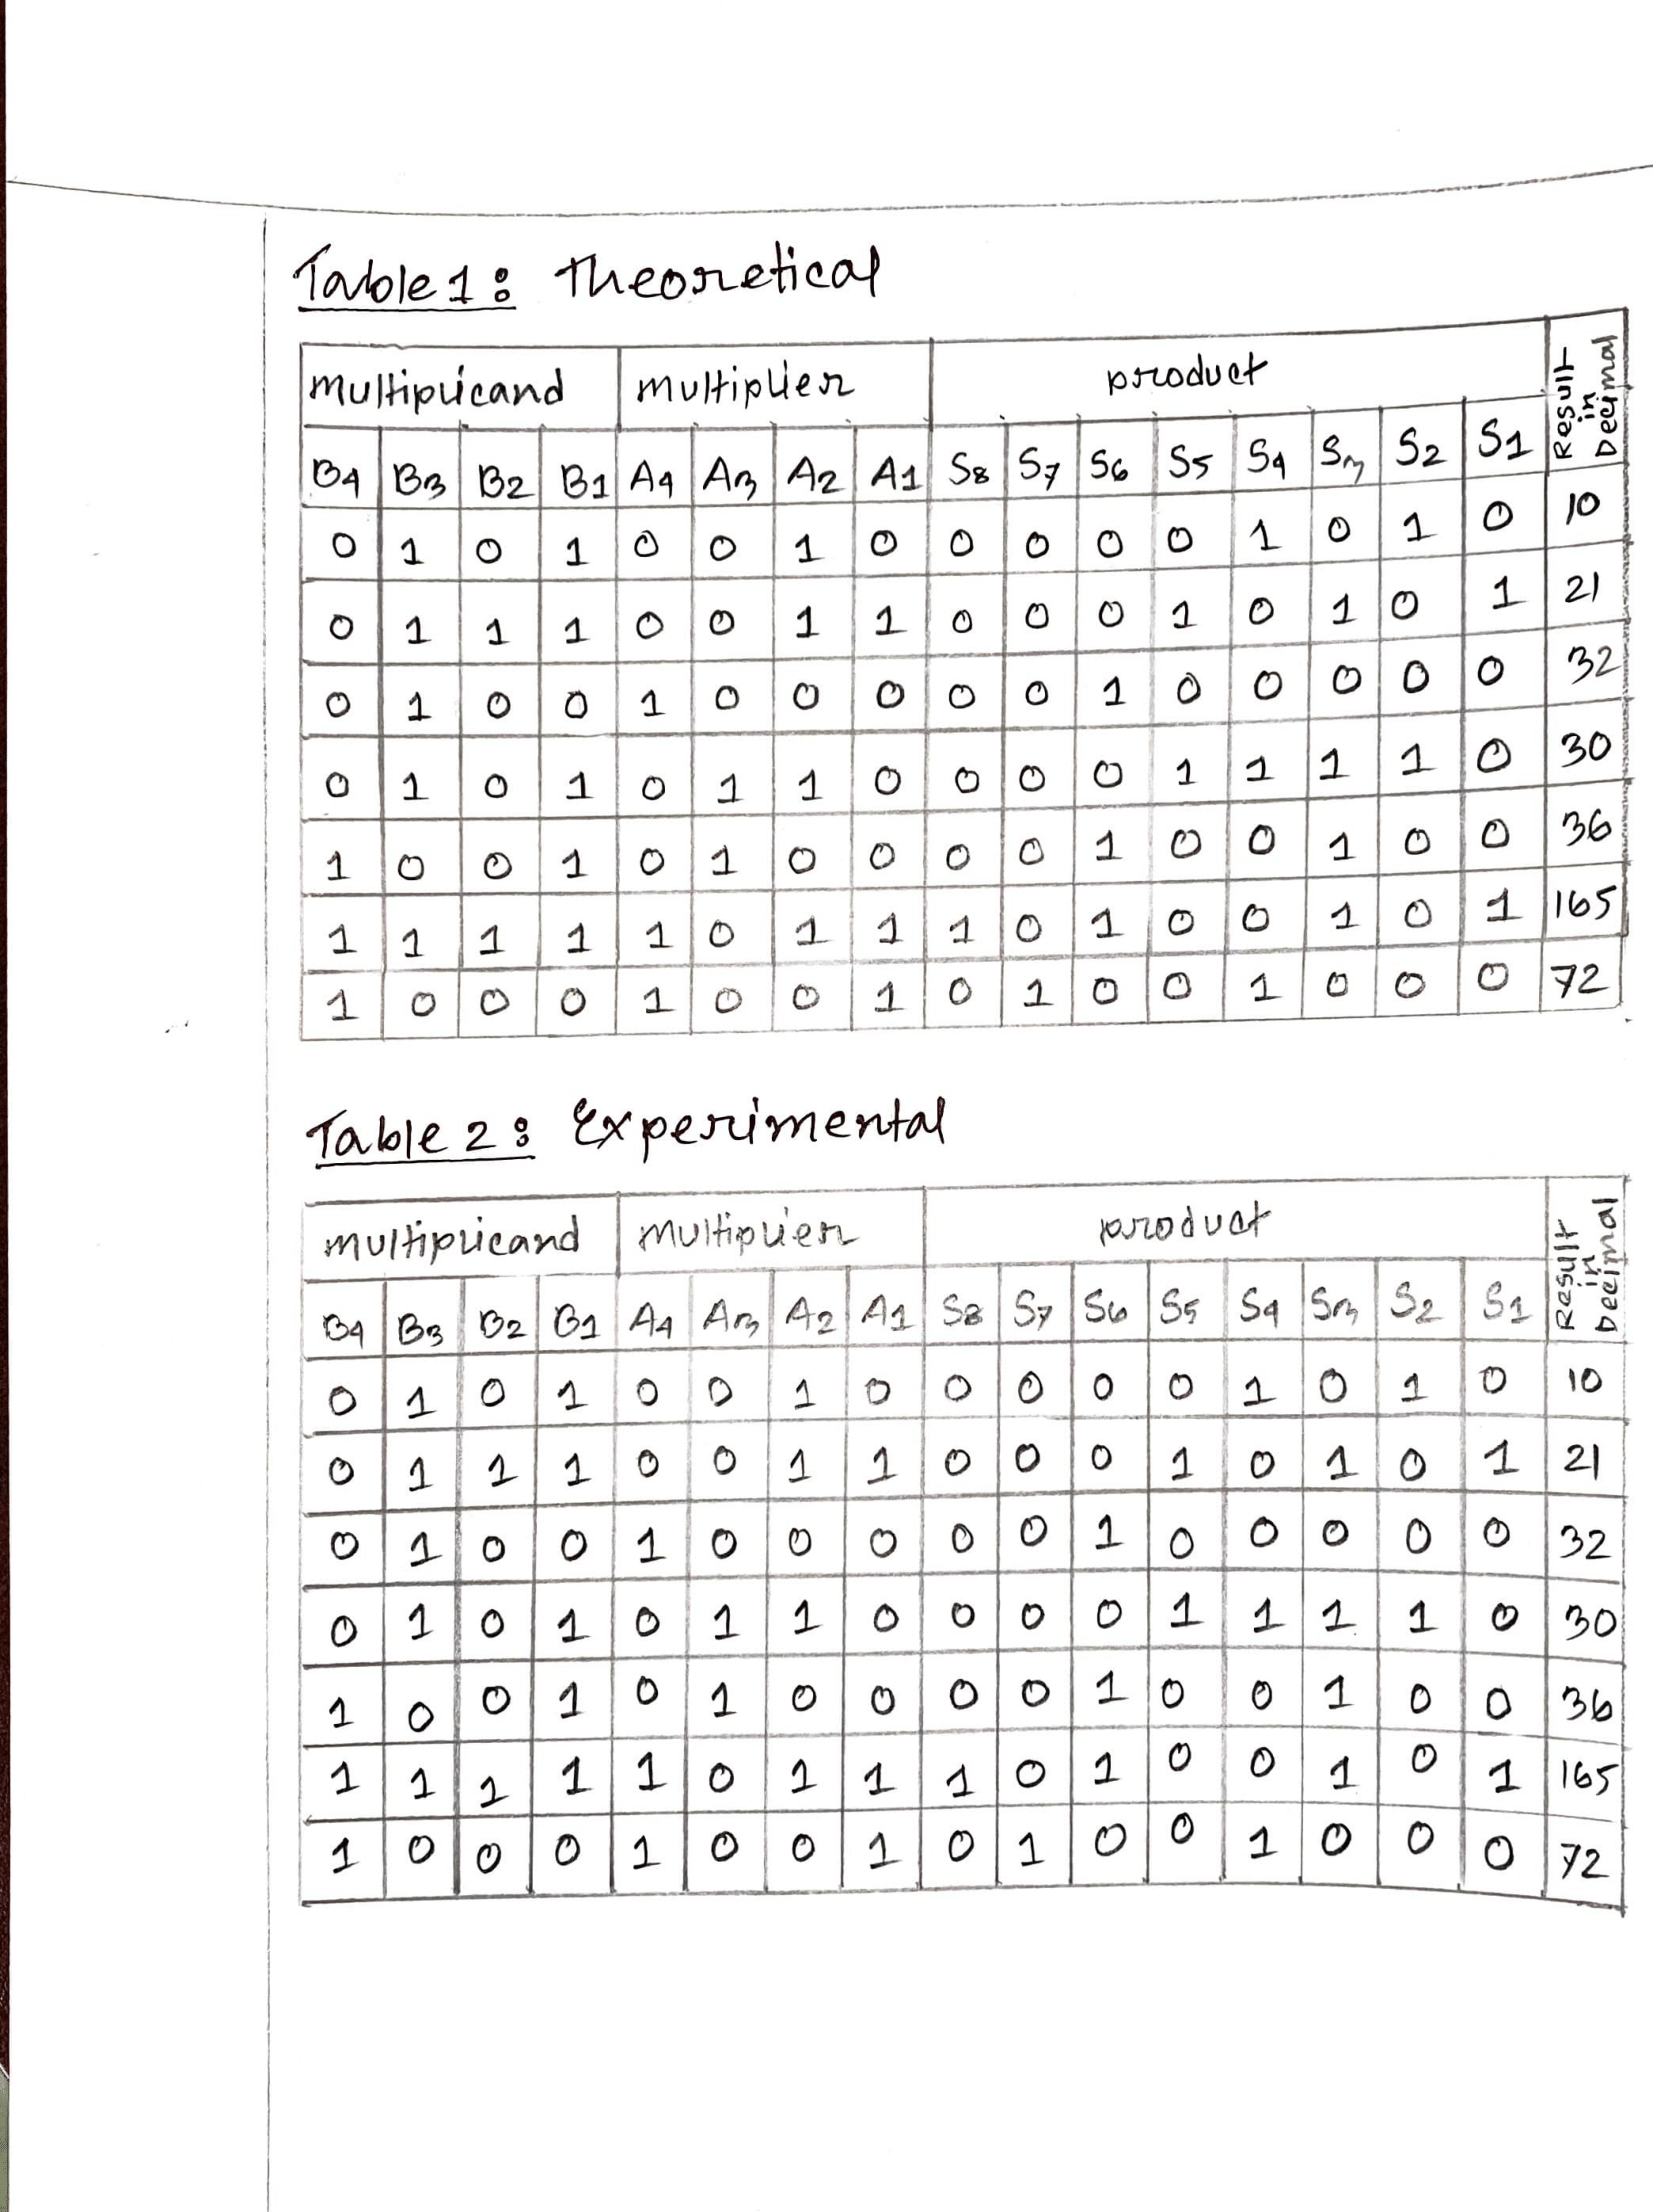 Table 1: Theoretical
multiplicand multiplier product Result in Decimal
B4 B3 B2 B1 A4 A3 A2 A1 S8 S7 S6 S5 S4 S3 S2 S1
0 1 0 1 0 0 1 0 0 0 0 0 1 0 1 0 10
0 1 1 1 0 0 1 1 0 0 0 1 0 1 0 1 21
0 1 0 0 1 0 0 0 0 0 1 0 0 0 0 0 32
0 1 0 1 0 1 1 0 0 0 0 1 1 1 1 0 30
1 0 0 1 0 1 0 0 0 0 1 0 0 1 0 0 36
1 1 1 1 1 0 1 1 1 0 1 0 0 1 0 1 165
1 0 0 0 1 0 0 1 0 1 0 0 1 0 0 0 72
Table 2: Experimental
multiplicand multiplier product Result in Decimal
B4 B3 B2 B1 A4 A3 A2 A1 S8 S7 S6 S5 S4 S3 S2 S1
0 1 0 1 0 0 1 0 0 0 0 0 1 0 1 0 10
0 1 1 1 0 0 1 1 0 0 0 1 0 1 0 1 21
0 1 0 0 1 0 0 0 0 0 1 0 0 0 0 0 32
0 1 0 1 0 1 1 0 0 0 0 1 1 1 1 0 30
1 0 0 1 0 1 0 0 0 0 1 0 0 1 0 0 36
1 1 1 1 1 0 1 1 1 0 1 0 0 1 0 1 165
1 0 0 0 1 0 0 1 0 1 0 0 1 0 0 0 72